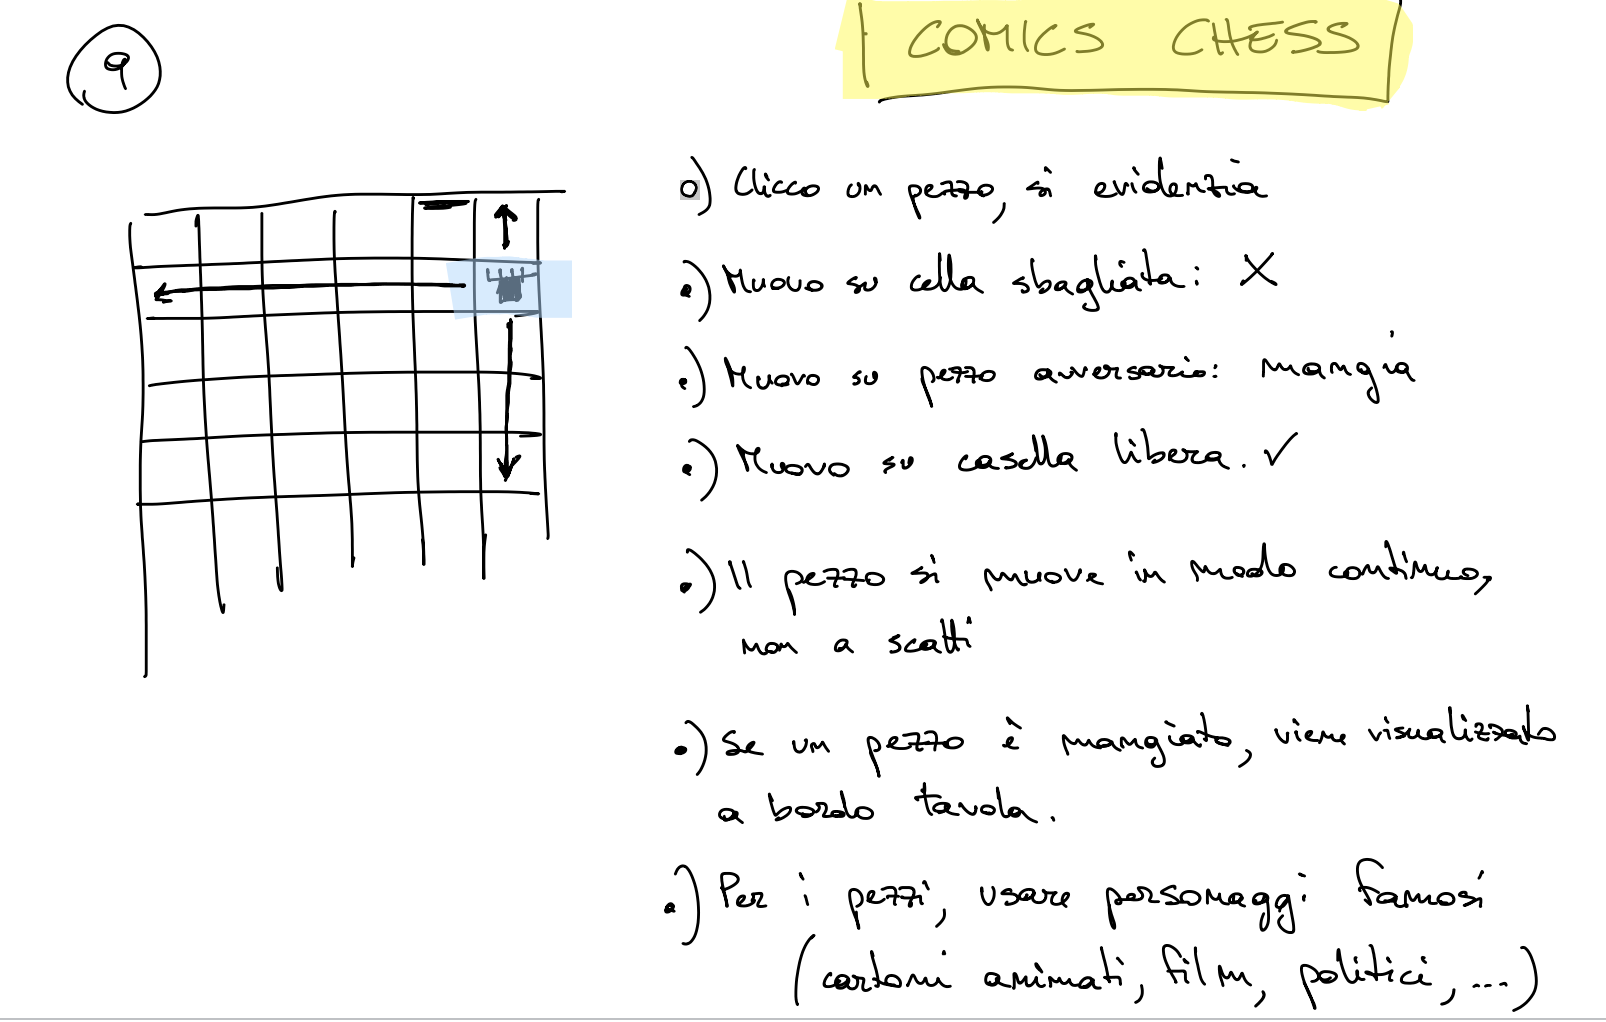 9
COMICS CHESS
o) Clicco un pezzo, si evidenzia
•) Muovo su cella sbagliata: X
•) Muovo su pezzo avversario: mangia
•) Muovo su casella libera. ✓
•) Il pezzo si muove in modo continuo,
non a scatti
•) Se un pezzo è mangiato, viene visualizzato
a bordo tavola.
•) Per i pezzi, usare personaggi famosi
(cartoni animati, film, politici, ....)